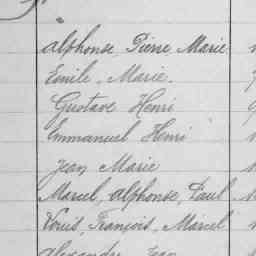 Alphonse, Pierre, Marie
Emile, Marie.
Gustave Henri
Emmanuel Henri
Jean Marie
Marcel, Alphonse, Paul
Louis, François, Marcel
Alexandre Jean